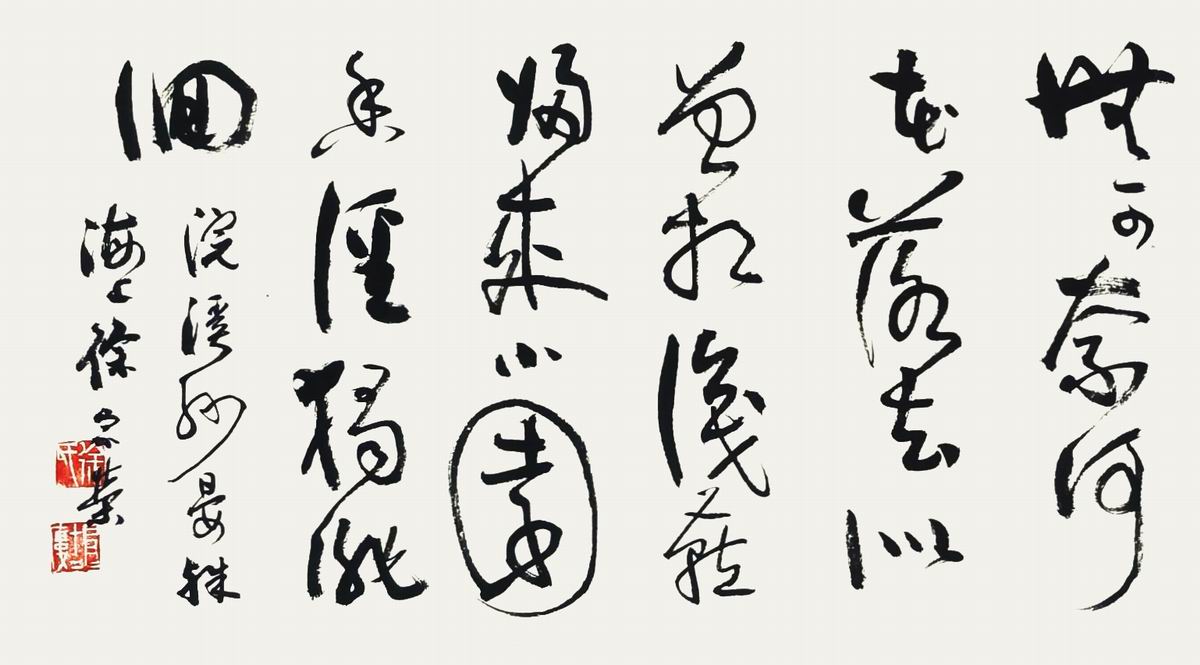 無可奈何
花落去似
曾相識燕
歸來小園
香徑獨徘
徊
浣溪沙晏殊
海上徐榮